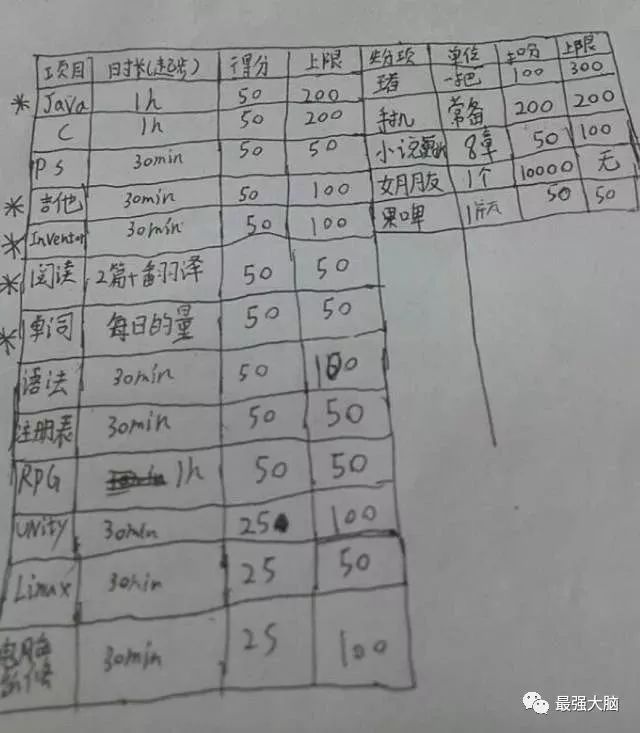 项目 时长(起步) 得分 上限 失分项 单位 扣分 上限
* Java 1h 50 200 一把 100 300
C 1h 50 200 手机 常备 200 200
PS 30min 50 50 小说 8章 50 100
* 吉他 30min 50 100 女月月友 1个 10000 无
* Inventor 30min 50 100 果啤 50 50
* 阅读 2篇+翻译 50 50
* 单词 每日的量 50 50
语法 30min 50 100
注册表 30min 50 50
RPG 1h 50 50
unity 30min 25 100
Linux 30min 25 50
电脑 30min 25 100
最强大脑